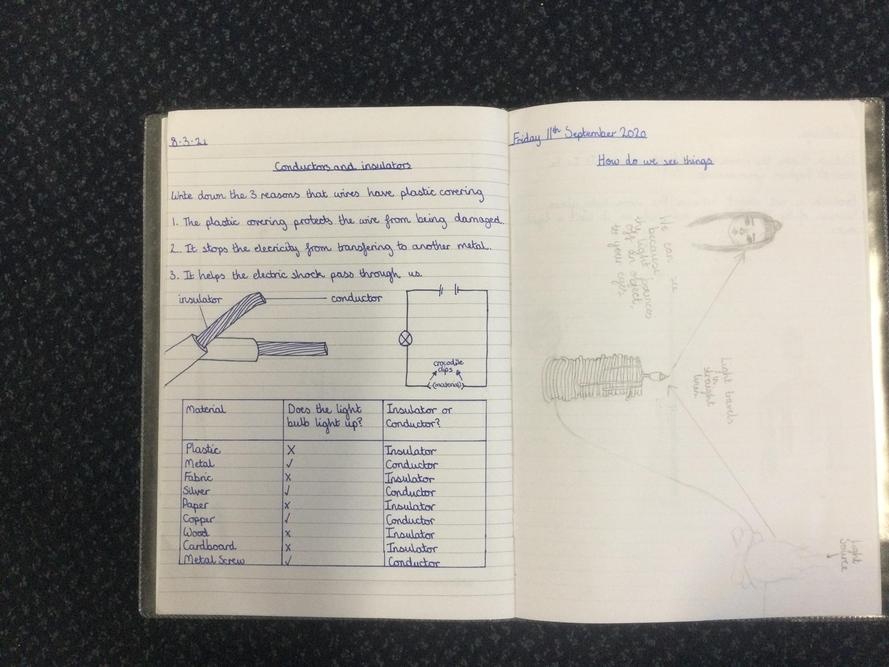 8.3.21
Conductors and insulators
Write down the 3 reasons that wires have plastic covering
1. The plastic covering protects the wire from being damaged.
2. It stops the elecricity from transfering to another metal.
3. It helps the electric shock pass through us.
insulator
conductor
crocodile
clips
(material)
Material Does the light Insulator or
bulb light up? Conductor?
Plastic X Insulator
Metal ✓ Conductor
Fabric X Insulator
Silver ✓ Conductor
Paper X Insulator
Copper ✓ Conductor
Wood X Insulator
Cardboard X Insulator
Metal Screw ✓ Conductor
Friday 11th September 2020
How do we see things
We can see
because
the light bounces
off an object,
to your eyes
Light travels
in
straight
lines
Light
Source